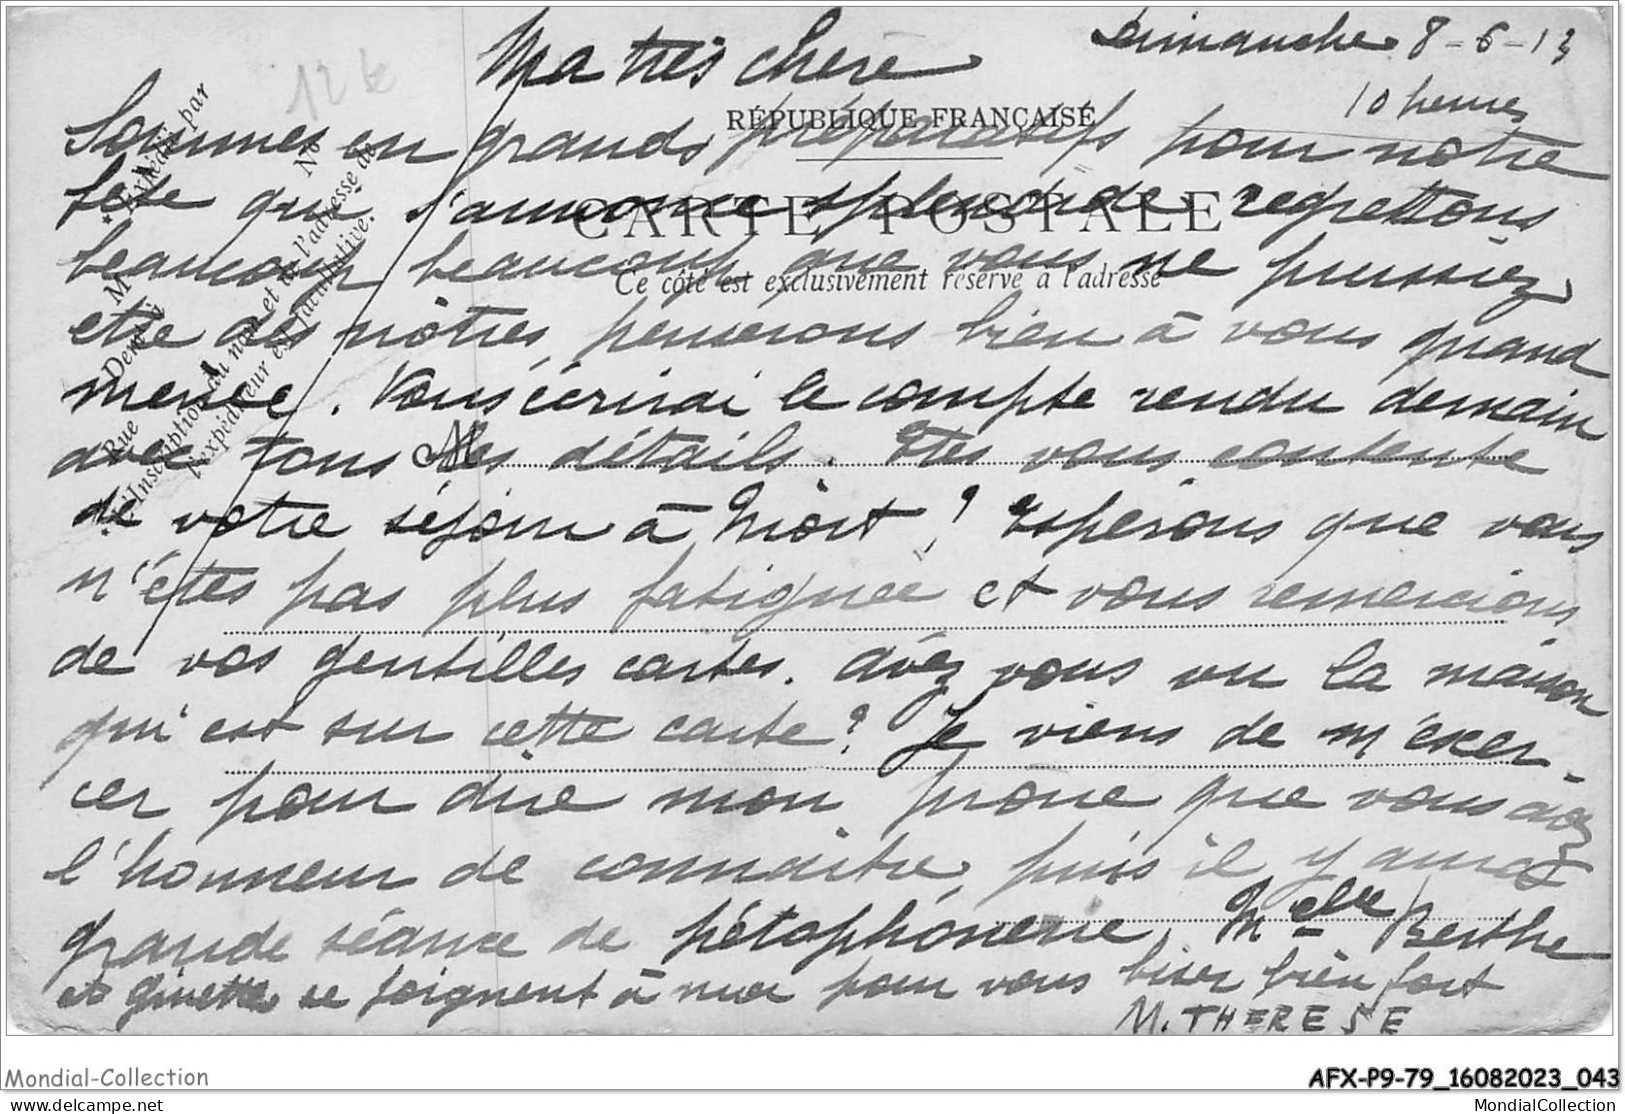 Dimanche 8-6-13
10 heures
12 €
Ma très chère
RÉPUBLIQUE FRANÇAISE
CARTE POSTALE
Ce côté est exclusivement réservé à l'adresse
Expédié par
M
Rue
N°
Demeure
L'inscription du nom et de l'adresse de
l'expéditeur est facultative.
M
Sommes en grands préparatifs pour notre
fete qui s'annonce splendide, regrettons
beaucoup beaucoup que vous ne pussiez
etre des nôtres, penserons bien à vous quand
meme. Vous écrirai le compte rendu demain
avec tous les détails. Etes vous contente
de votre séjour à Niort? Espérons que vous
n'êtes pas plus fatiguée et vous remercions
de vos gentilles cartes. Avez vous vu la maison
qui est sur cette carte? Je viens de m'exer-
cer pour dire mon prone que vous avez
l'honneur de connaitre, puis il y aura
grande séance de pétophonerie. Melle Berthe
et Ginette se joignent à moi pour vous biser bien fort
M. THERESE
Mondial-Collection
AFX-P9-79_16082023_043
delcampe.net
MondialCollection